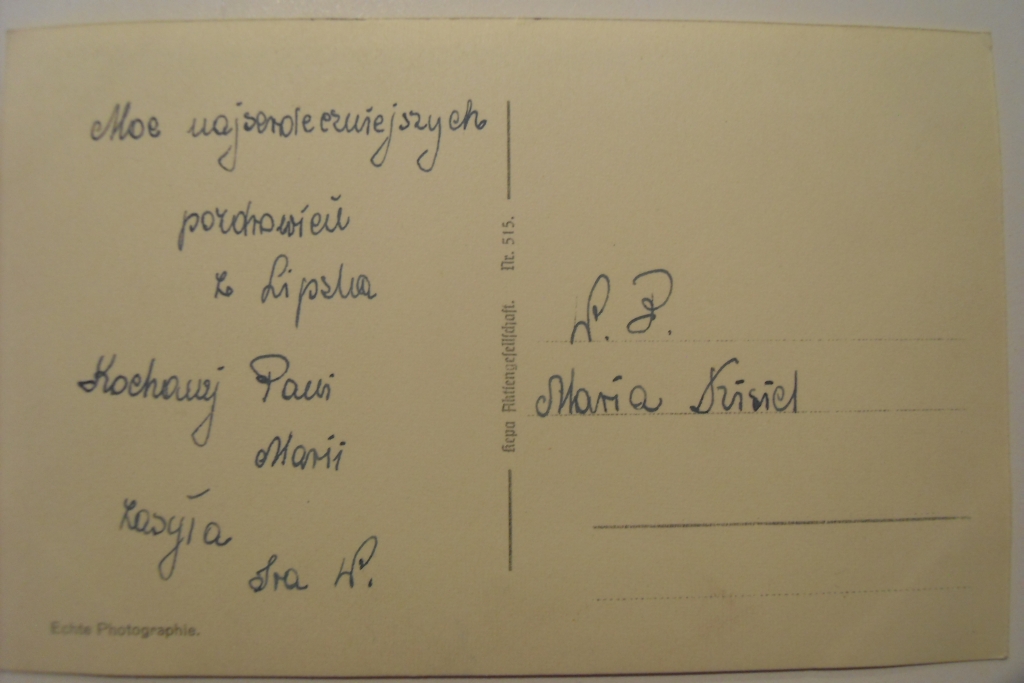 Moc najserdeczniejszych
pozdrowień
z Lipska
Kochanej Pani
Marii
zasyła
Ira W.
Echte Photographie.
Kepa Aktiengesellschaft. Nr. 515.
W. P.
Maria